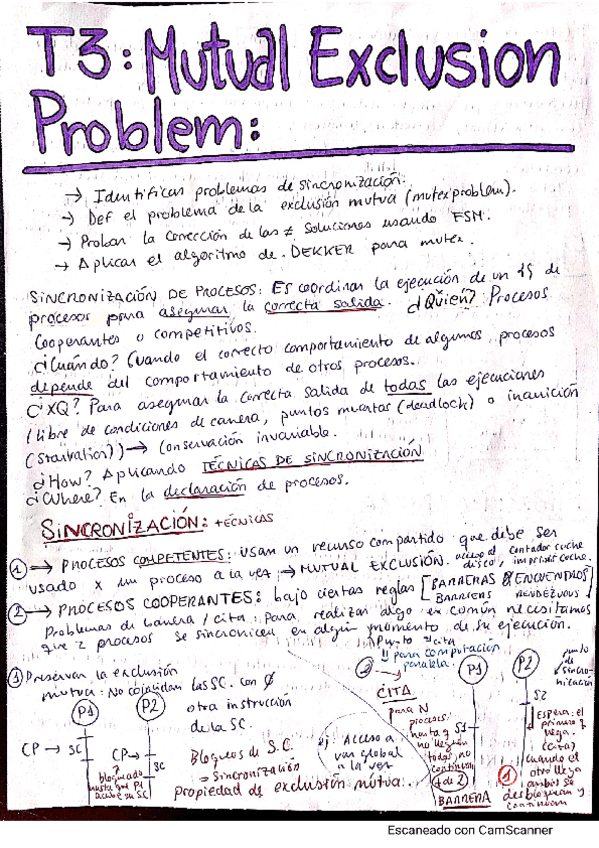 T3: Mutual Exclusion
Problem:
→ Identificar problemas de sincronización.
→ Def el problema de la exclusión mutua (mutex problem).
→ Probar la corrección de las ≠ soluciones usando FSM.
→ Aplicar el algoritmo de DEKKER para mutex.
SINCRONIZACIÓN DE PROCESOS: Es coordinar la ejecución de un de
procesos para asegurar la correcta salida. ¿Quién? Procesos
Cooperantes o competitivos.
¿Cuándo? Cuando el correcto comportamiento de algunos procesos
depende del comportamiento de otros procesos.
¿XQ? Para asegurar la correcta salida de todas las ejecuciones
(libre de condiciones de carrera, puntos muertos (deadlock) o inanición
(starvation)) → Conservación invariable.
¿How? Aplicando TÉCNICAS DE SINCRONIZACIÓN
¿Where? En la declaración de procesos.
SINCRONIZACIÓN: TÉCNICAS
① → PROCESOS COMPETENTES: usan un recurso compartido que debe ser
usado x un proceso a la vez → MUTUAL EXCLUSIÓN. acceso al contador coche
disco, imprimir coche.
② → PROCESOS COOPERANTES: bajo ciertas reglas [BARRERAS & ENCUENTROS
BARRIERS RENDEZVOUS]
Problemas de barrera / cita: para realizar algo en común necesitamos
que 2 procesos se sincronicen en algún momento de su ejecución.
para computación
paralela.
① Preservar la exclusión
mutua: No coincidan las SC. con
otra instrucción
de la SC.
P1 P2
CP → SC
CP → SC
bloqueado
hasta que P1
acabe su SC
Bloqueos de S.C.
= Sincronización
propiedad de exclusión mútua.
Acceso a
var global
a la vez
②
CITA
para N
procesos:
hasta q
no lleguen
todas, no
continúan
+ de 2
BARRERA
P1 P2
S1
S2
punto
de
sincronización
Espera: el
primero q
llega.
(cita)
cuando el
otro llega
ambos se
desbloquean y
continúan
①
Escaneado con CamScanner